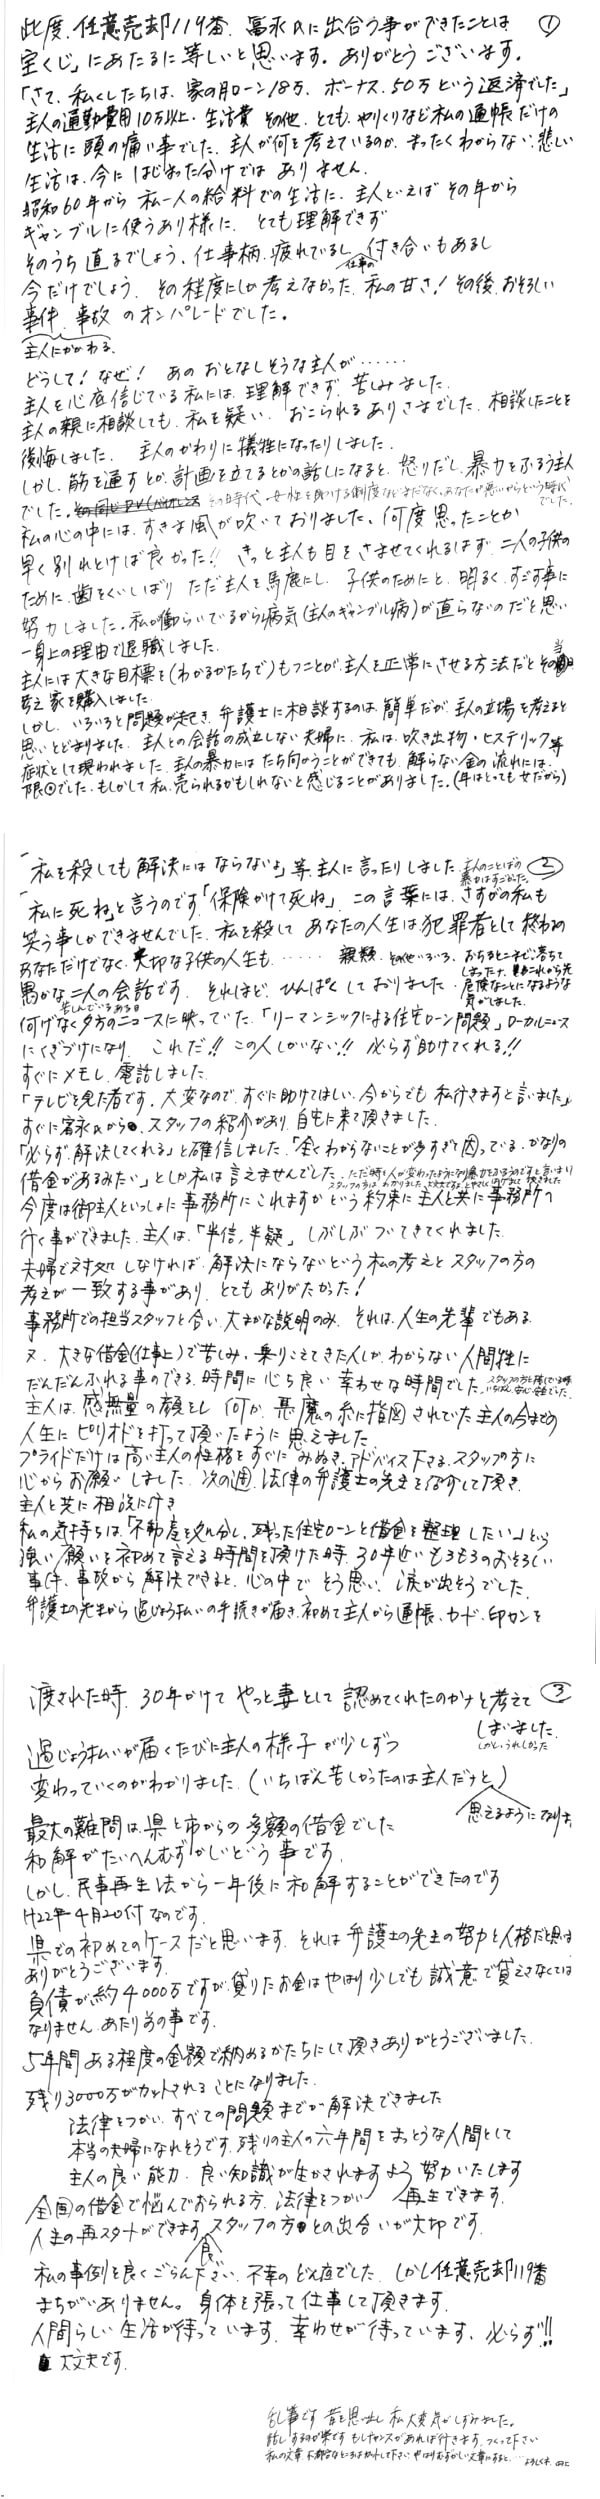 ①
此度、任意売却119番 冨永氏に出合う事ができたことは
宝くじにあたるに等しいと思います。ありがとうございます。
「さて、私くしたちは、家の月ローン18万、ボーナス、50万という返済でした」
主人の通勤費用10万以上・生活費 その他、とても、やりくりなど私の通帳だけの
生活に頭の痛い事でした。主人が何を考えているのか、まったくわからない、悲しい
生活は、今に はじまった分けでは ありません。
昭和60年から 私一人の給料での生活に、主人といえば その年から
ギャンブルに使うあり様に、とても理解できず
そのうち直るでしょう、仕事柄、疲れているし、仕事の付き合いもあるし
今だけでしょう、その程度にしか考えなかった、私の甘さ! その後、おそろしい
事件、事故 のオンパレードでした。
主人にかかわる、
どうして! なぜ! あの おとなしそうな主人が……
主人を心底信じている私には、理解できず、苦しみました。
主人の親に相談しても、私を疑い、おこられるありさまでした、相談したことを
後悔しました。 主人のかわりに犠牲になったりしました。
しかし、筋を通すとか、計画を立てるとかの話しになると、怒りだし、暴力をふるう主人
でした。その時代、女性を助ける制度などまだなく、あなたが悪いからという時代でした。
私の心の中には、すきま風が吹いておりました、何度思ったことか
早く別れとけば良かった!! きっと主人も目をさませてくれるはず、二人の子供の
ために、歯をくいしばり ただ主人を馬鹿にし、子供のためにと、明るく、すごす事に
努力しました。私が働らいているから病気(主人のギャンブル病)が直らないのだと思い
一身上の理由で退職しました。
主人には大きな目標を(わかるかたちで)もつことが、主人を正常にさせる方法だとその当
考え 家を購入しました。
しかし、いろいろと問題が起き、弁護士に相談するのは、簡単だが、主人の立場を考えると
思いとどまりました。主人との会話の成立しない夫婦に、私は、吹き出物・ヒステリック等
症状として現われました。主人の暴力には たち向かうことができても、解らない金の流れには、
限でした。もしかして私、売られるかもしれないと感じることがありました。
②
「私を殺しても 解決には ならないよ」等、主人に言ったりしました、主人のことばの暴力はすごかった。
「私に死ね」と言うのです「保険がけて死ね」、この言葉には、さすがの私も
笑う事しかできませんでした。私を殺して あなたの人生は犯罪者として 終わるの
あなただけでなく、大切な子供の人生も……
愚かな二人の会話です。それほど、ひんぱくしておりました。
苦しんでいるある日
何げなく夕方のニュースに映っていた、「リーマンショックによる住宅ローン問題」ローカルニュース
にくぎづけになり、 これだ!! この人しかいない!! 必らず助けてくれる!!
すぐにメモし、電話しました
「テレビを見た者です。大変なので、すぐに助けてほしい、今からでも 私行きますと言いました」
すぐに冨永氏から、スタッフの紹介があり、自宅に来て頂きました。
「必らず、解決してくれる」と確信しました、「全くわからないことが多すぎて困っている、かなりの
借金があるみたい」としか私は言えませんでした。
今度は御主人といっしょに事務所にこれますかという約束に主人と共に事務所へ
行く事ができました。主人は、「半信、半疑」しぶしぶ ついてきてくれました
夫婦で対処しなければ、解決にならないという私の考えとスタッフの方の
考えが一致する事があり、とてもありがたかった!
事務所での担当スタッフと合い、大まかな説明のみ、それは、人生の先輩でもある
又、大きな借金(仕事上)で苦しみ、乗りこえてきた人しか、わからない人間性に
だんだんふれる事のできる、時間に心ち良い 幸わせな時間でした。
主人は、感無量の顔をし、何か、悪魔の糸に指図されていた主人の今までの
人生に ピリオドを打って頂いたように思えました。
プライドだけは高い主人の性格をすぐにみぬき、アドバイス下さる、スタッフの方に
心からお願いしました。次の週、法律の弁護士の先生を紹介して頂き、
主人と共に相談に行き
私の気持ちは、「不動産を処分し、残った住宅ローンと借金を整理したい」という
強い願いを初めて言える時間を頂けた時、30年近いもろもろのおそろしい
事件、事故から解決できると、心の中で そう思い、涙が出そうでした、
弁護士の先生から過じょう払いの手続きが届き、初めて主人から通帳、カード、印カンを
③
渡された時、30年かけて やっと妻として 認めてくれたのかナと考えて
しまいました。
過じょう払いが届くたびに主人の様子が少しずつ
変わっていくのがわかりました。(いちばん苦しかったのは主人だナと)
思えるようになります。
最大の難問は、県と市からの多額の借金でした
和解がたいへんむずかしいという事です。
しかし、民事再生法から一年後に和解することができたのです
H22年4月20付なのです。
県での初めてのケースだと思います、それは弁護士の先生の努力と人格だと思います
ありがとうございます。
負債が約4000万ですが、貸りたお金はやはり少しでも誠意で貸えさなくては
なりません。あたり前の事です。
5年間ある程度の金額で納めるかたちにして頂きありがとうございました。
残り3000万がカットされることになりました。
法律をつかい、すべての問題までが解決できました
本当の夫婦になれそうです。残りの主人の六年間をまっとうな人間として
主人の良い能力、良い知識が生かされますよう努力いたします
全国の借金で悩んでおられる方、法律をつかい 再生できます。
人生の再スタートができます。スタッフの方との出合いが大切です。
私の事例を良くごらん下さい。不幸のどん底でした。しかし任意売却119番
まちがいありません。身体を張って仕事して頂きます。
人間らしい生活が待っています。幸わせが待っています、必らず!!
大丈夫です。
乱筆です 昔を思い出し 私大変気がしずみました。
話しするのが楽です もしチャンスがあれば行きます。つくって下さい